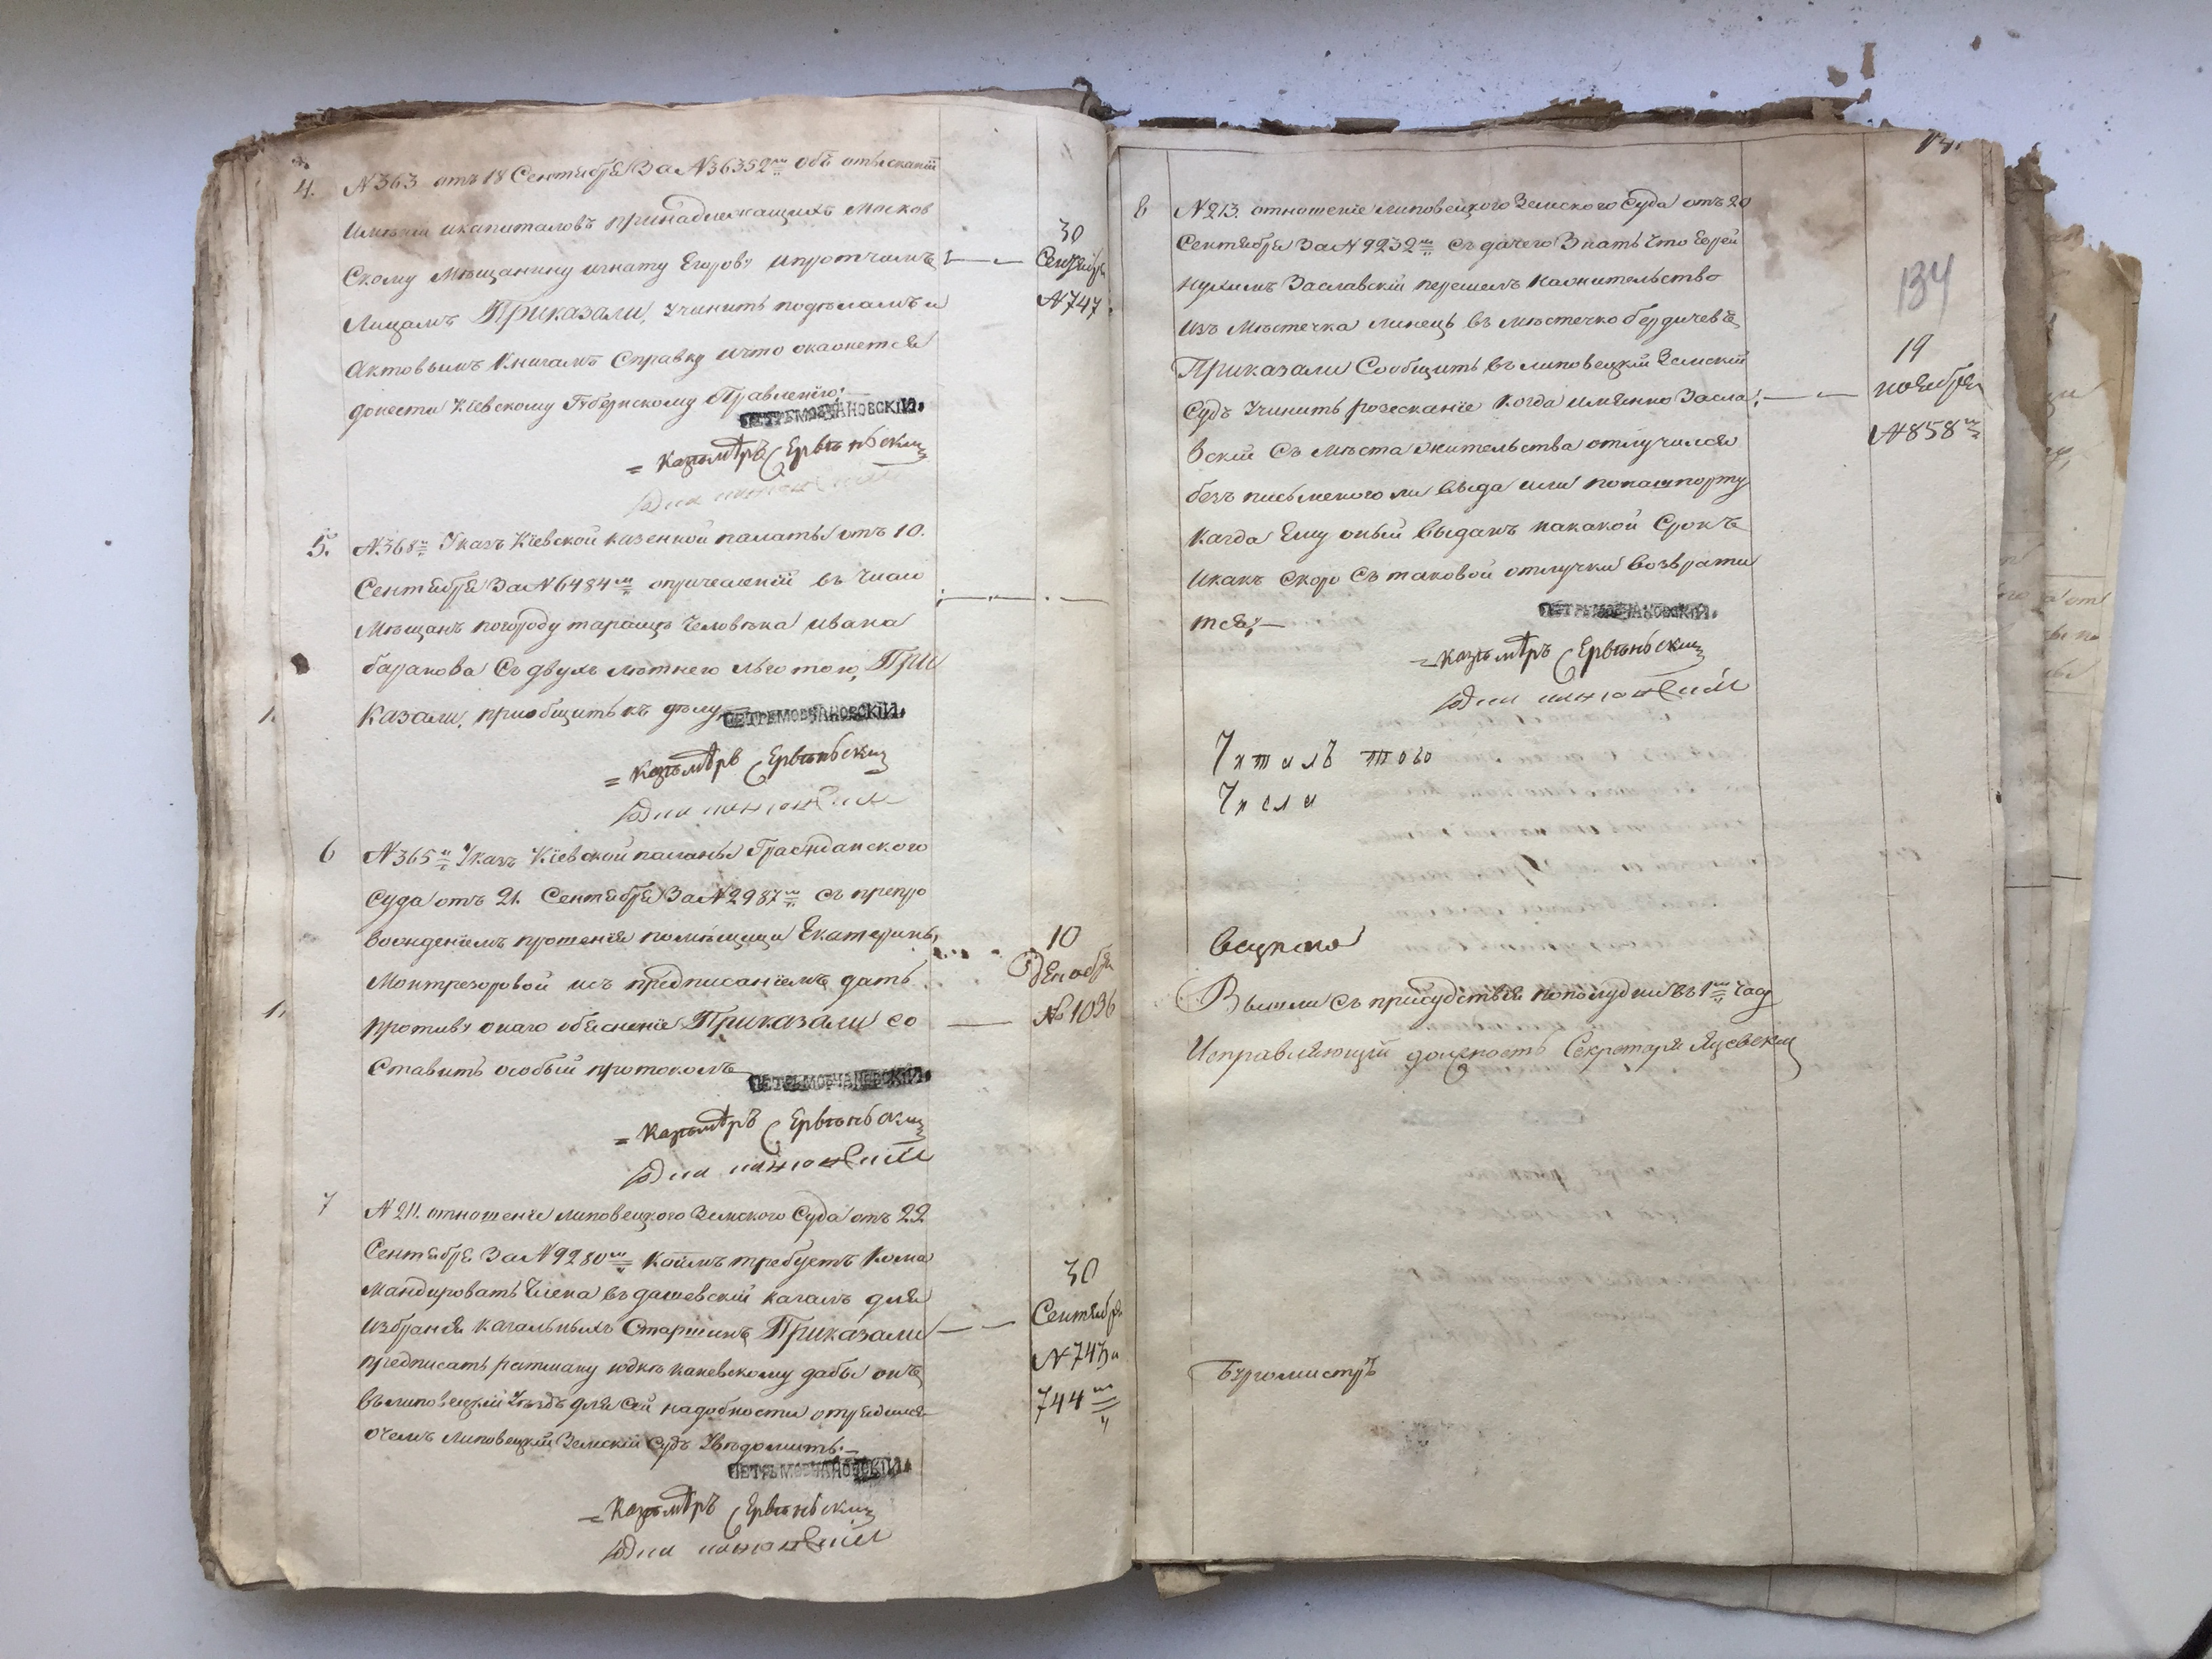 4. №363 отъ 18 Сентября За №36352мъ объ отысканіи
Имѣній и капиталовъ принадлежащихъ Москов
Скому Мѣщанину Игнату Егорову и протчимъ
Лицамъ Приказали, учинить по дѣламъ и
Актовымъ Книгамъ Справку и что окажется
донести Кіевскому Губернскому Правленію:
ПЕТРЪ МОВЧАНОВСКІЙ.
30
Сентября
№747
5. №368й Указъ Кіевской казенной палаты отъ 10.
Сентября За №6484мъ о причисленіи въ Число
Мѣщанъ по городу таращѣ Человѣка Ивана
баранова Съ двухъ лѣтнею льготою, При
казали, приобщить къ дѣлу
ПЕТРЪ МОВЧАНОВСКІЙ.
1.
6 №365й Указъ Кіевской палаты Гражданского
Суда отъ 21. Сентября За №2987мъ съ препро
вожденіемъ прошенія помѣщицы Екатерины
Монтрезоровой и съ предписаніемъ дать
противу онаго обясненіе Приказали со
Ставить особый протоколъ
ПЕТРЪ МОВЧАНОВСКІЙ.
1.
10
декабря
№1036
7 №211. отношеніе липовецкого Земского Суда отъ 22
Сентября За №9280мъ коимъ требуетъ Кома
мандировать Члена въ дашевскій кагалъ для
Избранія кагальныхъ Старшинъ Приказали
предписать ратману юдкѣ каневскому дабы онъ
въ липовецкій уѣздъ для сей надобности отрядился
о чемъ Липовецкій Земскій Судъ Увѣдомить.
ПЕТРЪ МОВЧАНОВСКІЙ.
30
Сентября
№743и
744мъ
134
8 №213. отношеніе липовецкого Земского Суда отъ 20
Сентября За №9232мъ Съ дачего Знать Что Еврей
нухимъ Заславскій перешелъ на жительство
изъ Мѣстечка линецъ въ мѣстечко бердичевъ
Приказали Сообщить въ липовецкій Земскій
Судъ Учинить розысканіе когда имянно Засла
вскій Съ мѣста жительства отлучился
безъ письменого ли вида или по пашпорту
кагда Ему оный выданъ на какой Срокъ
и какъ Скоро Съ таковой отлучки возврати
тся;
ПЕТРЪ МОВЧАНОВСКІЙ.
19
ноября
№858мъ
Читалъ того
Числа
Вышли съ присудствія по полудни въ 1мъ часу
Исправляющій должность Секретаря Яцевскій
Бургомистръ